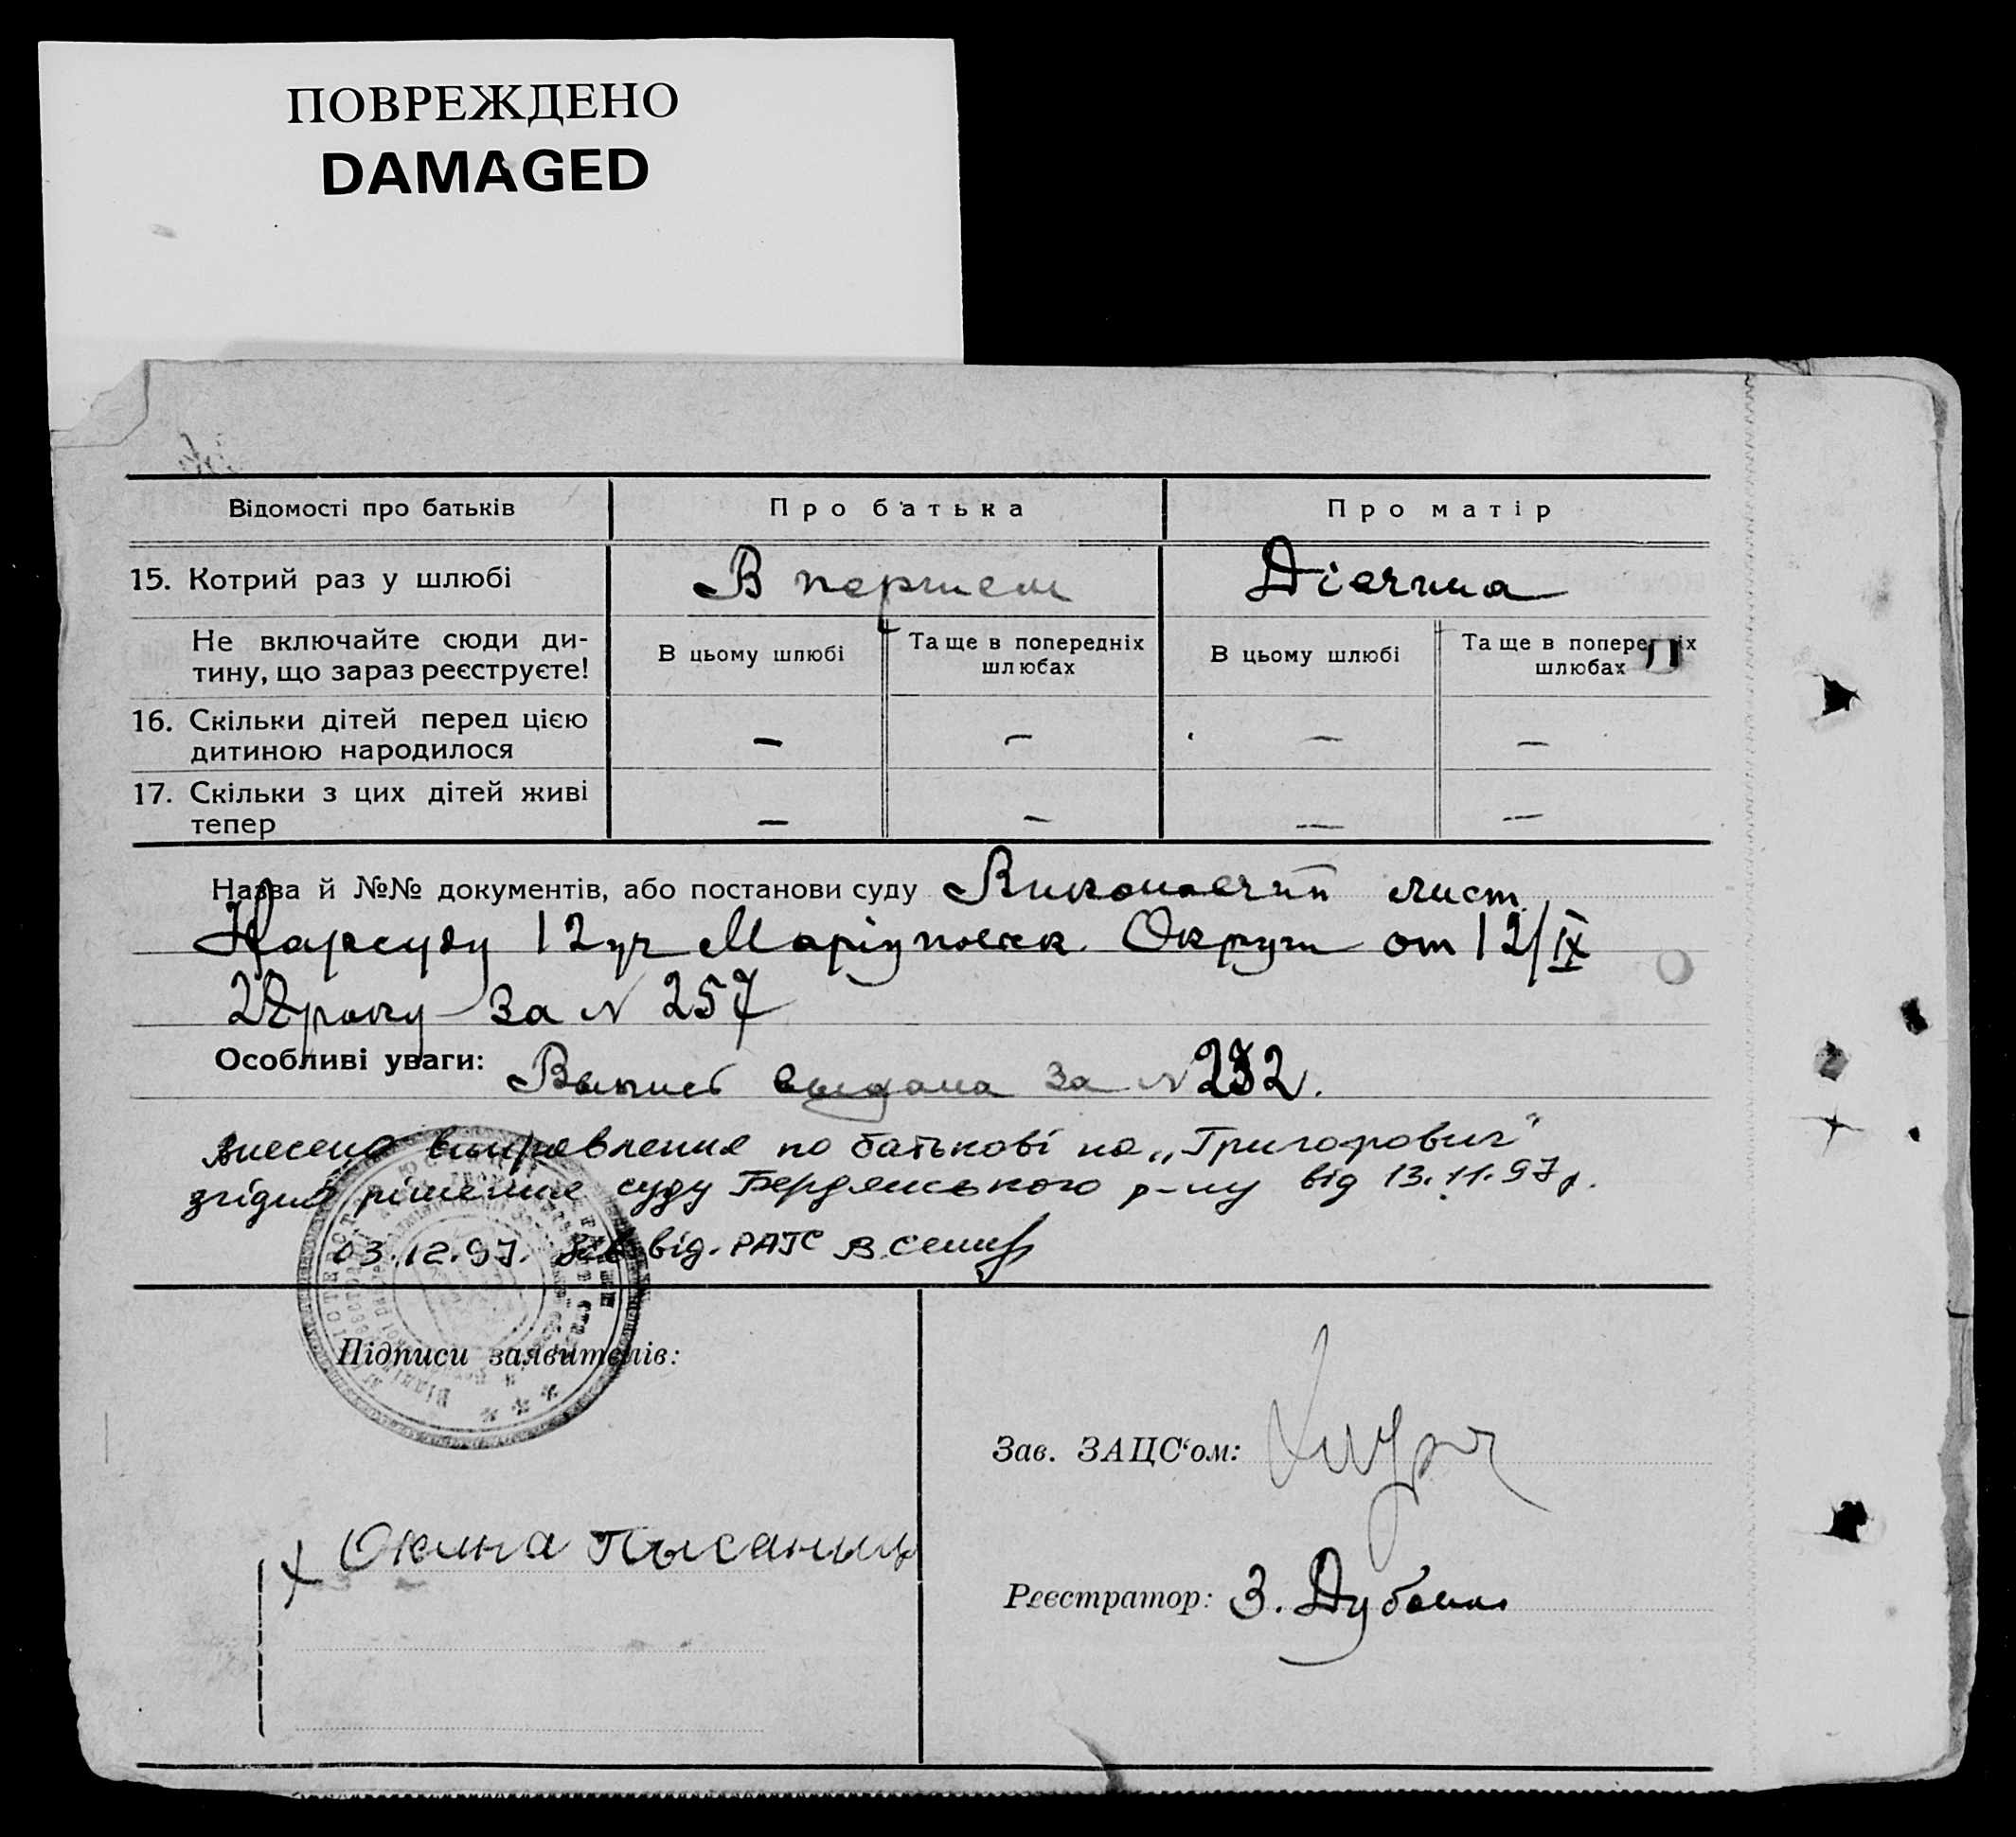 ПОВРЕЖДЕНО
DAMAGED
Відомості про батьків
Про батька
Про матір
15. Котрий раз у шлюбі
В першем
Дівчина
Не включайте сюди ди-
тину, що зараз реєструєте!
В цьому шлюбі
Та ще в попередніх
шлюбах
В цьому шлюбі
Та ще в попередніх
шлюбах
16. Скільки дітей перед цією
дитиною народилося
— — — —
17. Скільки з цих дітей живі
тепер
— — — —
Назва й №№ документів, або постанови суду Виконавчий лист
Нарсуду 12 уч Маріупольск Округи от 12/IX
28 року за N 257
Особливі уваги: Выпись выдана за N 232.
внесено виправлення по батькові на „Григорович"
згідно рішення суду Бердянського р-ну від 13.11.97р.
03.12.97. Зав від. РАГС
Підписи заявителів:
Зав. ЗАЦС‘ом:
Реєстратор: З.